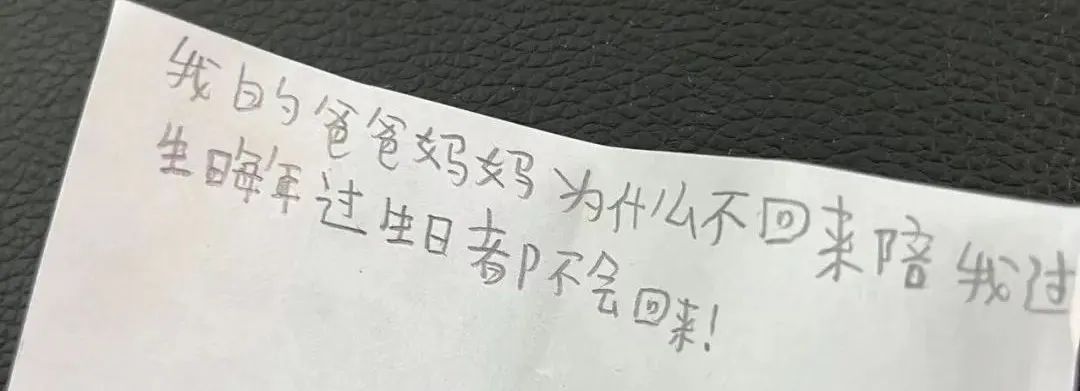 我的爸爸妈妈为什么不回来陪我过
生日每年过生日都不会回来!